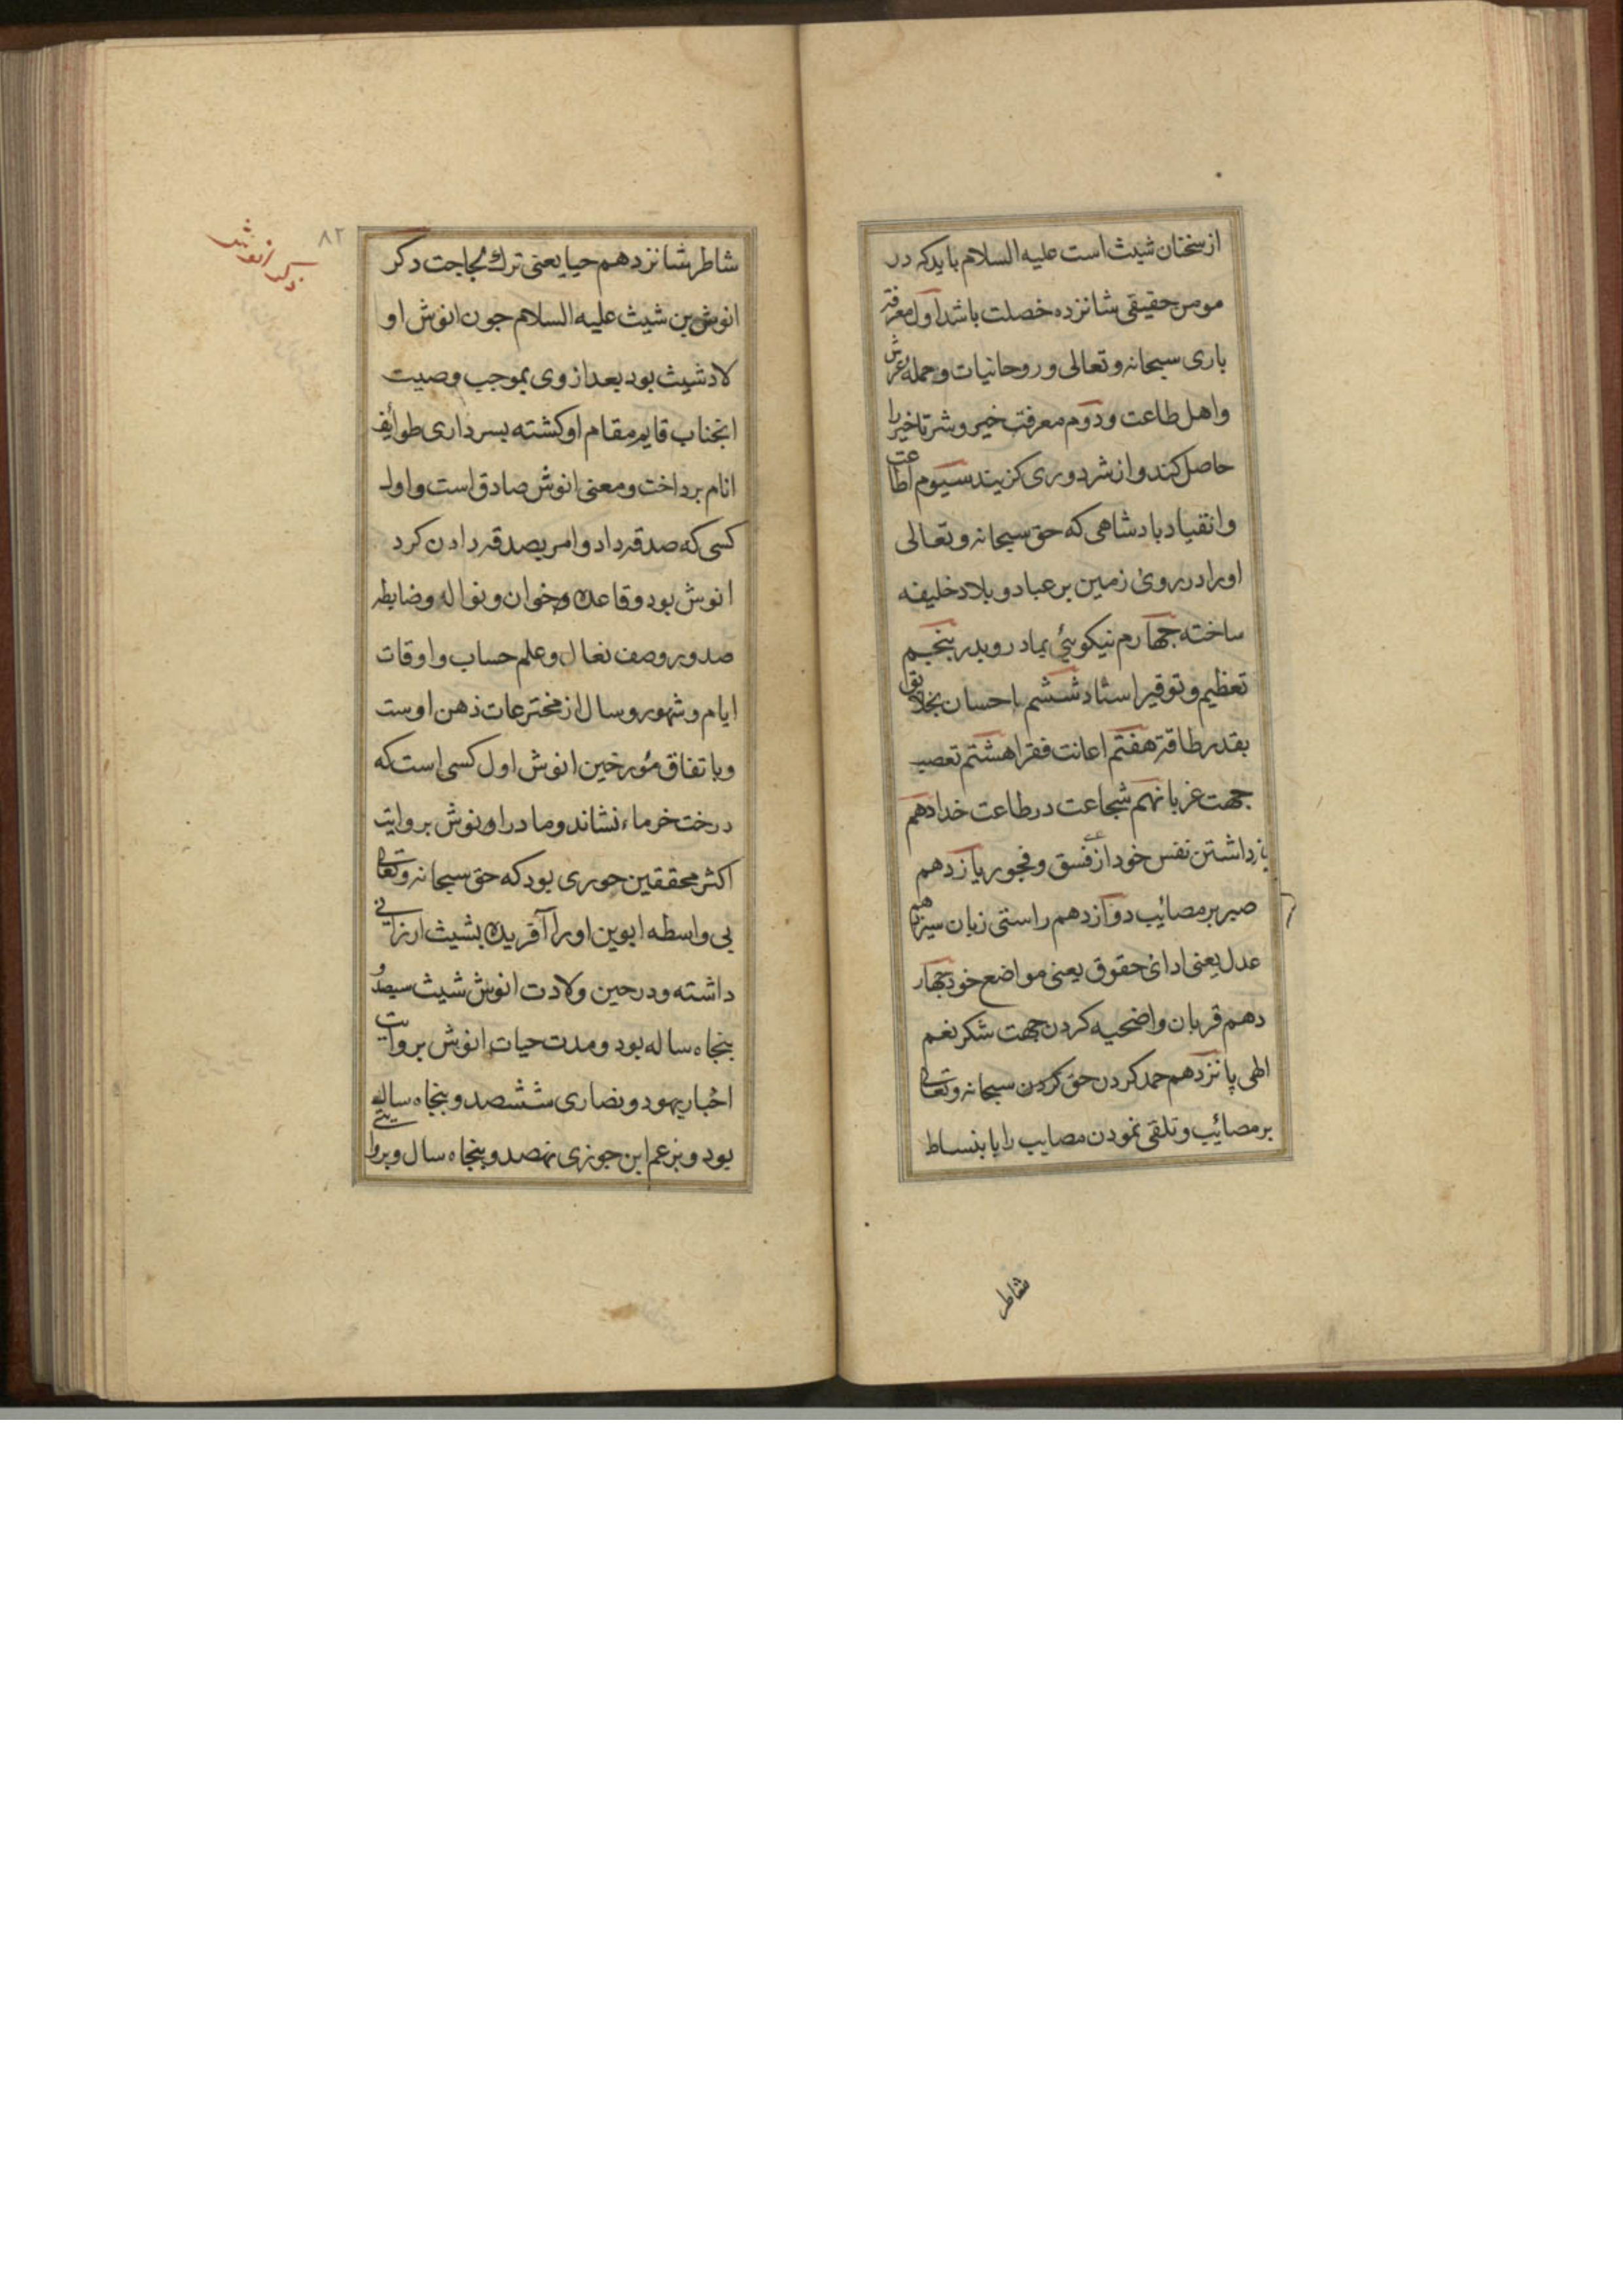 از سخنان شیث است علیه السلام باید که در
مومن حقیقی شانزده خصلت باشد اول معرفة
باری سبحانه و تعالی و روحانیات و حملهٔ عرش
و اهل طاعت و دوم معرفت خیر و شر تا خیر را
حاصل کند و از شر دوری کزیند سیوم اطاعت
و انقیاد بادشاهی که حق سبحانه و تعالی
او را در روی زمین بر عباد و بلاد خلیفه
ساخته جهارم نیکوئی بمادر و بدر بنجم
تعظیم و توقیر استاد ششم احسان بخلایق
بقدر طاقة هفتم اعانت فقرا هشتم تعصب
جهت غربا نهم شجاعت در طاعت خدا دهم
بازداشتن نفس خود از فسق و فجور یازدهم
صبر بر مصائیب دوازدهم راستی زبان سیزدهم
عدل یعنی ادائ حقوق یعنی مواضع خود جهار
دهم قربان و اضحیه کردن جهت شکر نعم
الهی پانزدهم حمد کردن حق کردن سبحانه و تعالی
بر مصائیب و تلقی نمودن مصایب را با بنساط
شاطر
۸۲
ذکر انوش
شاطر شانزدهم حیا یعنی ترک لجاجت ذکر
انوش بن شیث علیه السلام جون انوش او
لاد شیث بود بعد از وی بموجب وصیت
انجناب قایم مقام او کشته بسرداری طوائف
انام برداخت و معنی انوش صادق است و اول
کسی که صدقه داد و امر بصدقه دادن کرد
انوش بود و قاعده و خوان و نواله و ضابطه
صدور و صف نعال و علم حساب و اوقات
ایام و شهور و سال از مخترعات ذهن اوست
و باتفاق مؤرخین انوش اول کسی است که
درخت خرماء نشاند و مادر اونوش بروایت
اکثر محققین حوری بود که حق سبحانه و تعالی
بی واسطه ابوین او را آفریده بشیث ارزانی
داشته و در حین ولادت انوش شیث سیصد و
بنجاه ساله بود و مدت حیات انوش بروایت
اخبار یهود و نصاری ششصد و بنجاه ساله
بود و بزعم ابن جوزی نهصد و بنجاه سال و بروایتی